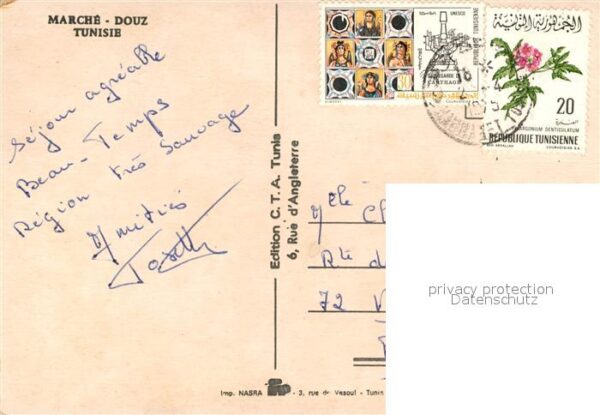 MARCHÉ - DOUZ
TUNISIE
Séjour agréable
Beau-Temps
Région très Sauvage
Amitiés
Edition C. T. A. Tunis
6, Rue d'Angleterre
UNESCO
REPUBLIQUE TUNISIENNE
SAUVEGARDE DE
CARTHAGE
الجمهورية التونسية
20
PELARGONIUM DENTICULATUM
REPUBLIQUE TUNISIENNE
Mlle
Rte d
72
privacy protection
Datenschutz
Imp. NASRA - 3, rue de Vesoul - Tunis